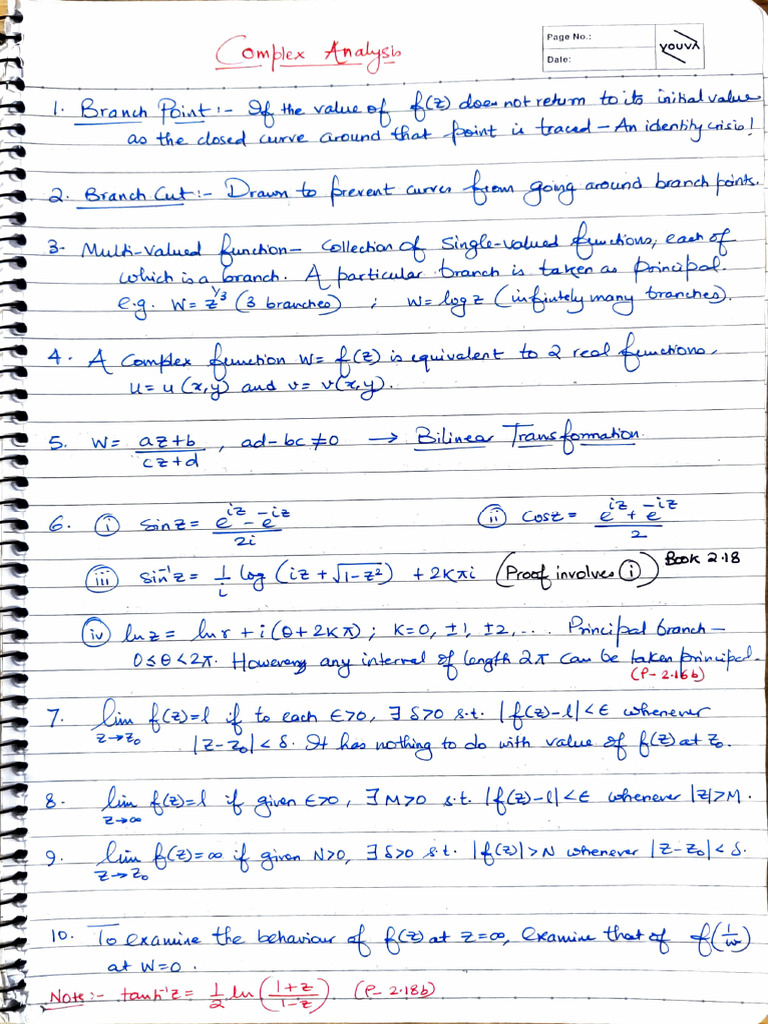 Page No.:
Date:
YOUVA
Complex Analysis
1. Branch Point :- If the value of f(z) does not return to its initial value
as the closed curve around that point is traced – An identity crisis!
2. Branch Cut :- Drawn to prevent curves from going around branch points.
3- Multi-valued function – Collection of single-valued functions, each of
which is a branch. A particular branch is taken as principal.
e.g. w = z^{1/3} (3 branches) ; w = log z (infinitely many branches).
4. A complex function w = f(z) is equivalent to 2 real functions,
u = u(x,y) and v = v(x,y).
5. w = (az+b)/(cz+d) , ad-bc ≠ 0 → Bilinear Transformation.
6. (i) sin z = (e^{iz} - e^{-iz})/2i (ii) cos z = (e^{iz} + e^{-iz})/2
(iii) sin⁻¹z = 1/i log (iz + √(1-z²)) + 2kπi (Proof involves (i)) Book 2.18
(iv) ln z = ln r + i(θ + 2kπ) ; k = 0, ±1, ±2, ... Principal branch –
0 ≤ θ < 2π. However, any interval of length 2π can be taken principal.
(P- 2.16b)
7. lim_{z→z₀} f(z) = l if to each ϵ>0, ∃ δ>0 s.t. |f(z)-l| < ϵ whenever
|z-z₀| < δ. It has nothing to do with value of f(z) at z₀.
8. lim_{z→∞} f(z) = l if given ϵ>0, ∃ M>0 s.t. |f(z)-l| < ϵ whenever |z| > M.
9. lim_{z→z₀} f(z) = ∞ if given N>0, ∃ δ>0 s.t. |f(z)| > N whenever |z-z₀| < δ.
10. To examine the behaviour of f(z) at z=∞, examine that of f(1/w)
at w=0.
Note :- tanh⁻¹z = 1/2 ln ((1+z)/(1-z)) (P- 2.18b)